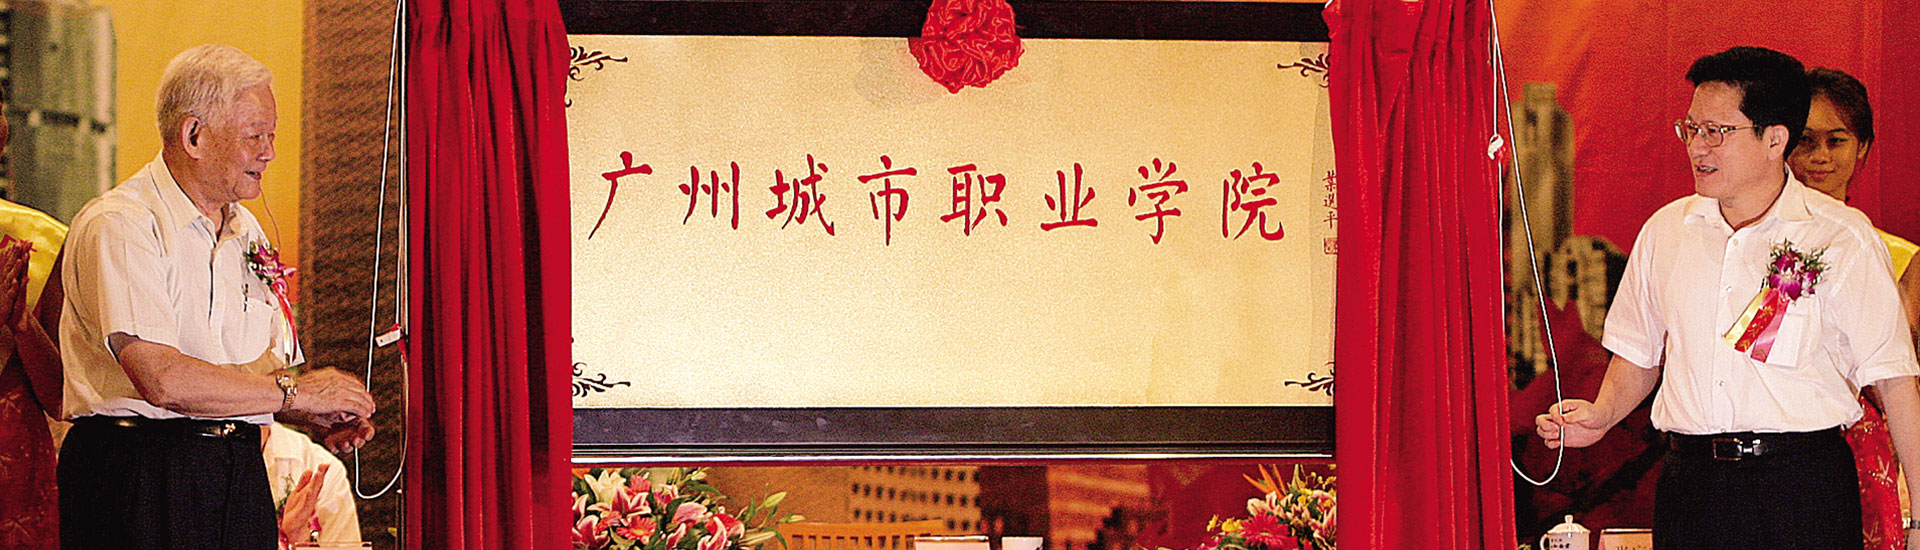 广州城市职业学院
葉選平